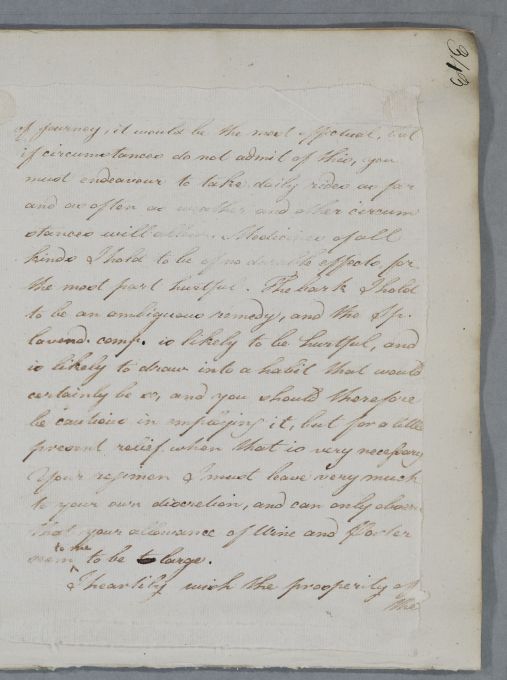 3/13
of Journey, it would be the most effectual, but
if circumstances do not admit of this, you
must endeavour to take daily rides as far
and as often as weather and other circum
stances will allow. Medicines of all
kinds I hold to be of no durable effects for
the most part hurtful. The bark I hold
to be an ambiguous remedy, and the Sp.
lavend. comp. is likely to be hurtful, and
is likely to draw into a habit that would
certainly be so, and you should therefore
be cautious in employing it, but for a little
present relief when that is very necessary
Your regimen I must leave very much
to your own discretion, and can only observe
that your allowance of Wine and Porter
seem to me to be to large.
I heartily wish the prosperity of
the